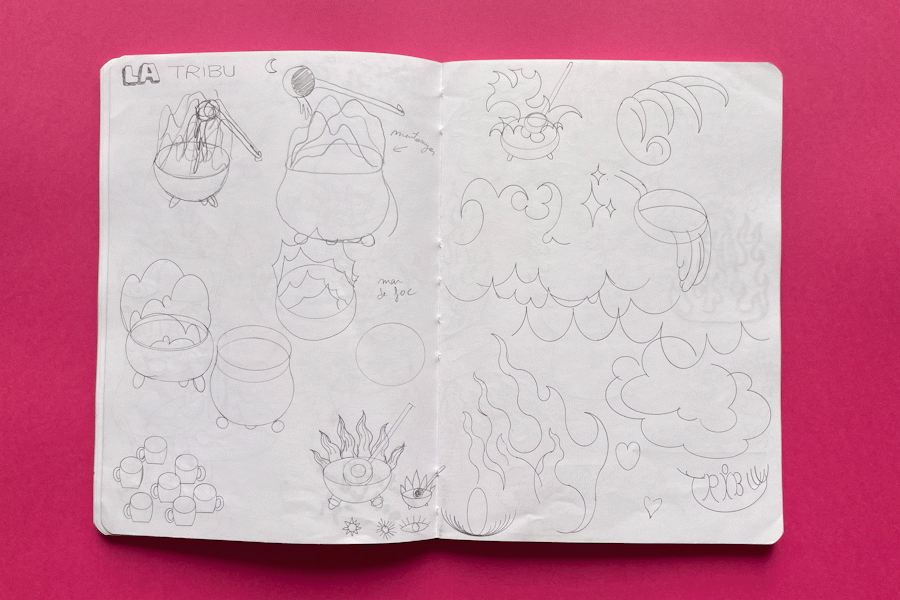 LA TRIBU
muntanyes
mar
de foc
TRIBU